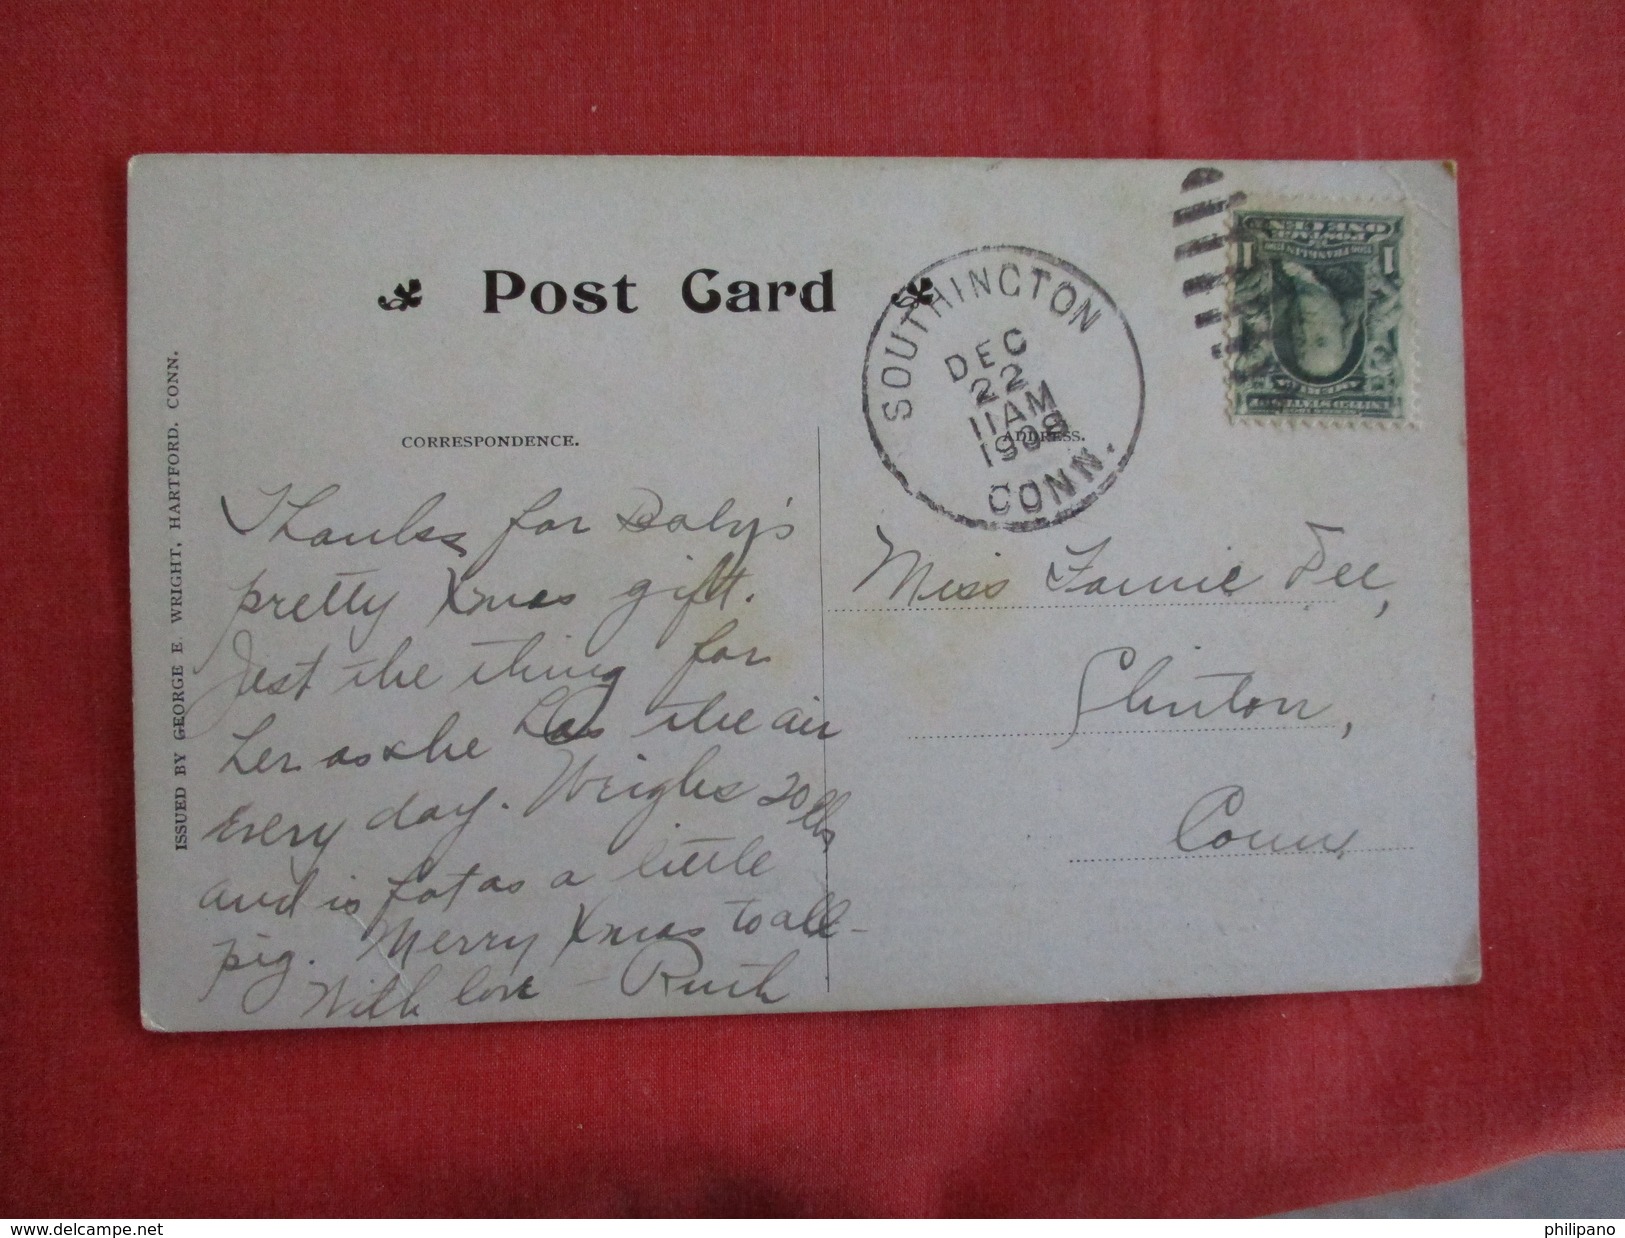 Post Card
CORRESPONDENCE.
ADDRESS.
ISSUED BY GEORGE E. WRIGHT, HARTFORD. CONN.
SOUTHINGTON
DEC
22
11 AM
1908
CONN.
ONE CENT
POSTAGE
FRANKLIN
1 1
UNITED STATES OF
AMERICA
Thanks for Baby's
pretty Xmas gift.
Just the thing for
her as she has the air
every day. Weighs 20 lbs
and is fat as a little
pig. Merry Xmas to all—
With love — Ruth
Miss Fannie Dee,
Clinton,
Conn.
www.delcampe.net
philipano